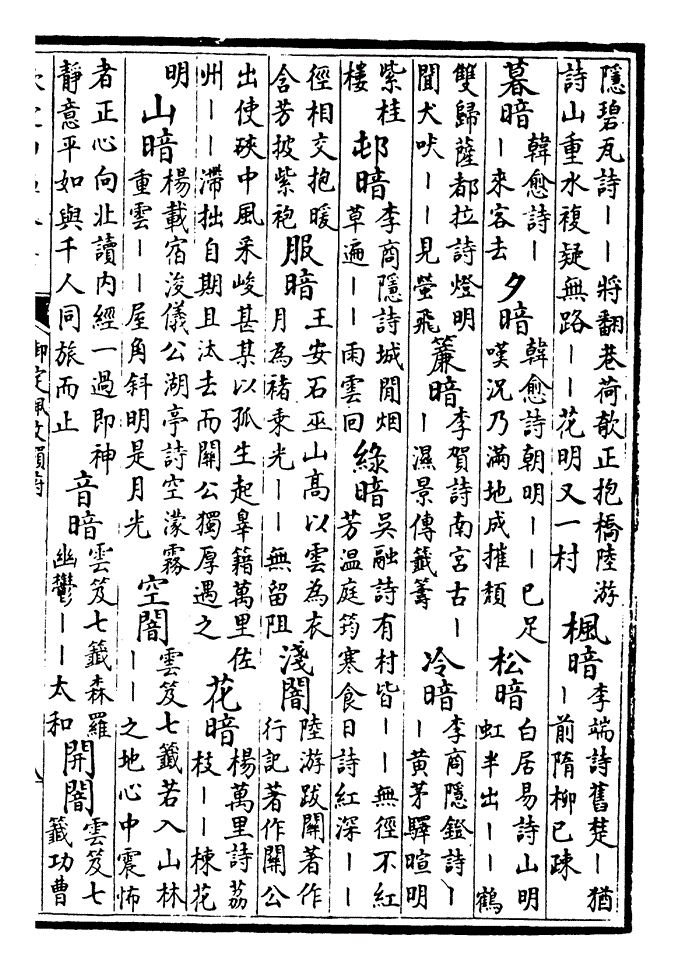 隱碧瓦詩丨丨將翻巷荷欹正抱橋陸游
詩山重水複疑無路丨丨花明又一村
楓暗
李端詩舊楚丨猶
丨前隋柳已疎
暮暗
韓愈詩丨
丨來客去
夕暗
韓愈詩朝明丨丨已足
嘆況乃滿地成摧頹
松暗
白居易詩山明
虹半出丨丨鶴
雙歸薩都拉詩燈明
聞犬吠丨丨見螢飛
簾暗
李賀詩南宮古丨
丨濕景傳籤籌
冷暗
李商隱鐙詩丨
丨黃茅驛暄明
紫桂
樓
邨暗
李商隱詩城閒烟
草遍丨丨雨雲回
綠暗
吳融詩有村皆丨丨無徑不紅
芳溫庭筠寒食日詩紅深丨丨
徑相交抱暖
含芳披紫袍
服暗
王安石巫山高以雲為衣
月為褚乘光丨丨無留阻
淺闇
陸游跋關著作
行記著作關公
出使硤中風采峻甚某以孤生起辠籍萬里佐
州丨丨滯拙自期且汰去而關公獨厚遇之
花暗
楊萬里詩荔
枝丨丨楝花
明
山暗
楊載宿浚儀公湖亭詩空濛霧
重雲丨丨屋角斜明是月光
空闇
雲笈七籤若入山林
丨丨之地心中震怖
者正心向北讀内經一過即神
靜意平如與千人同旅而止
音暗
雲笈七籤森羅
幽鬱丨丨太和
開闇
雲笈七
籤功曹
御定佩文韻府